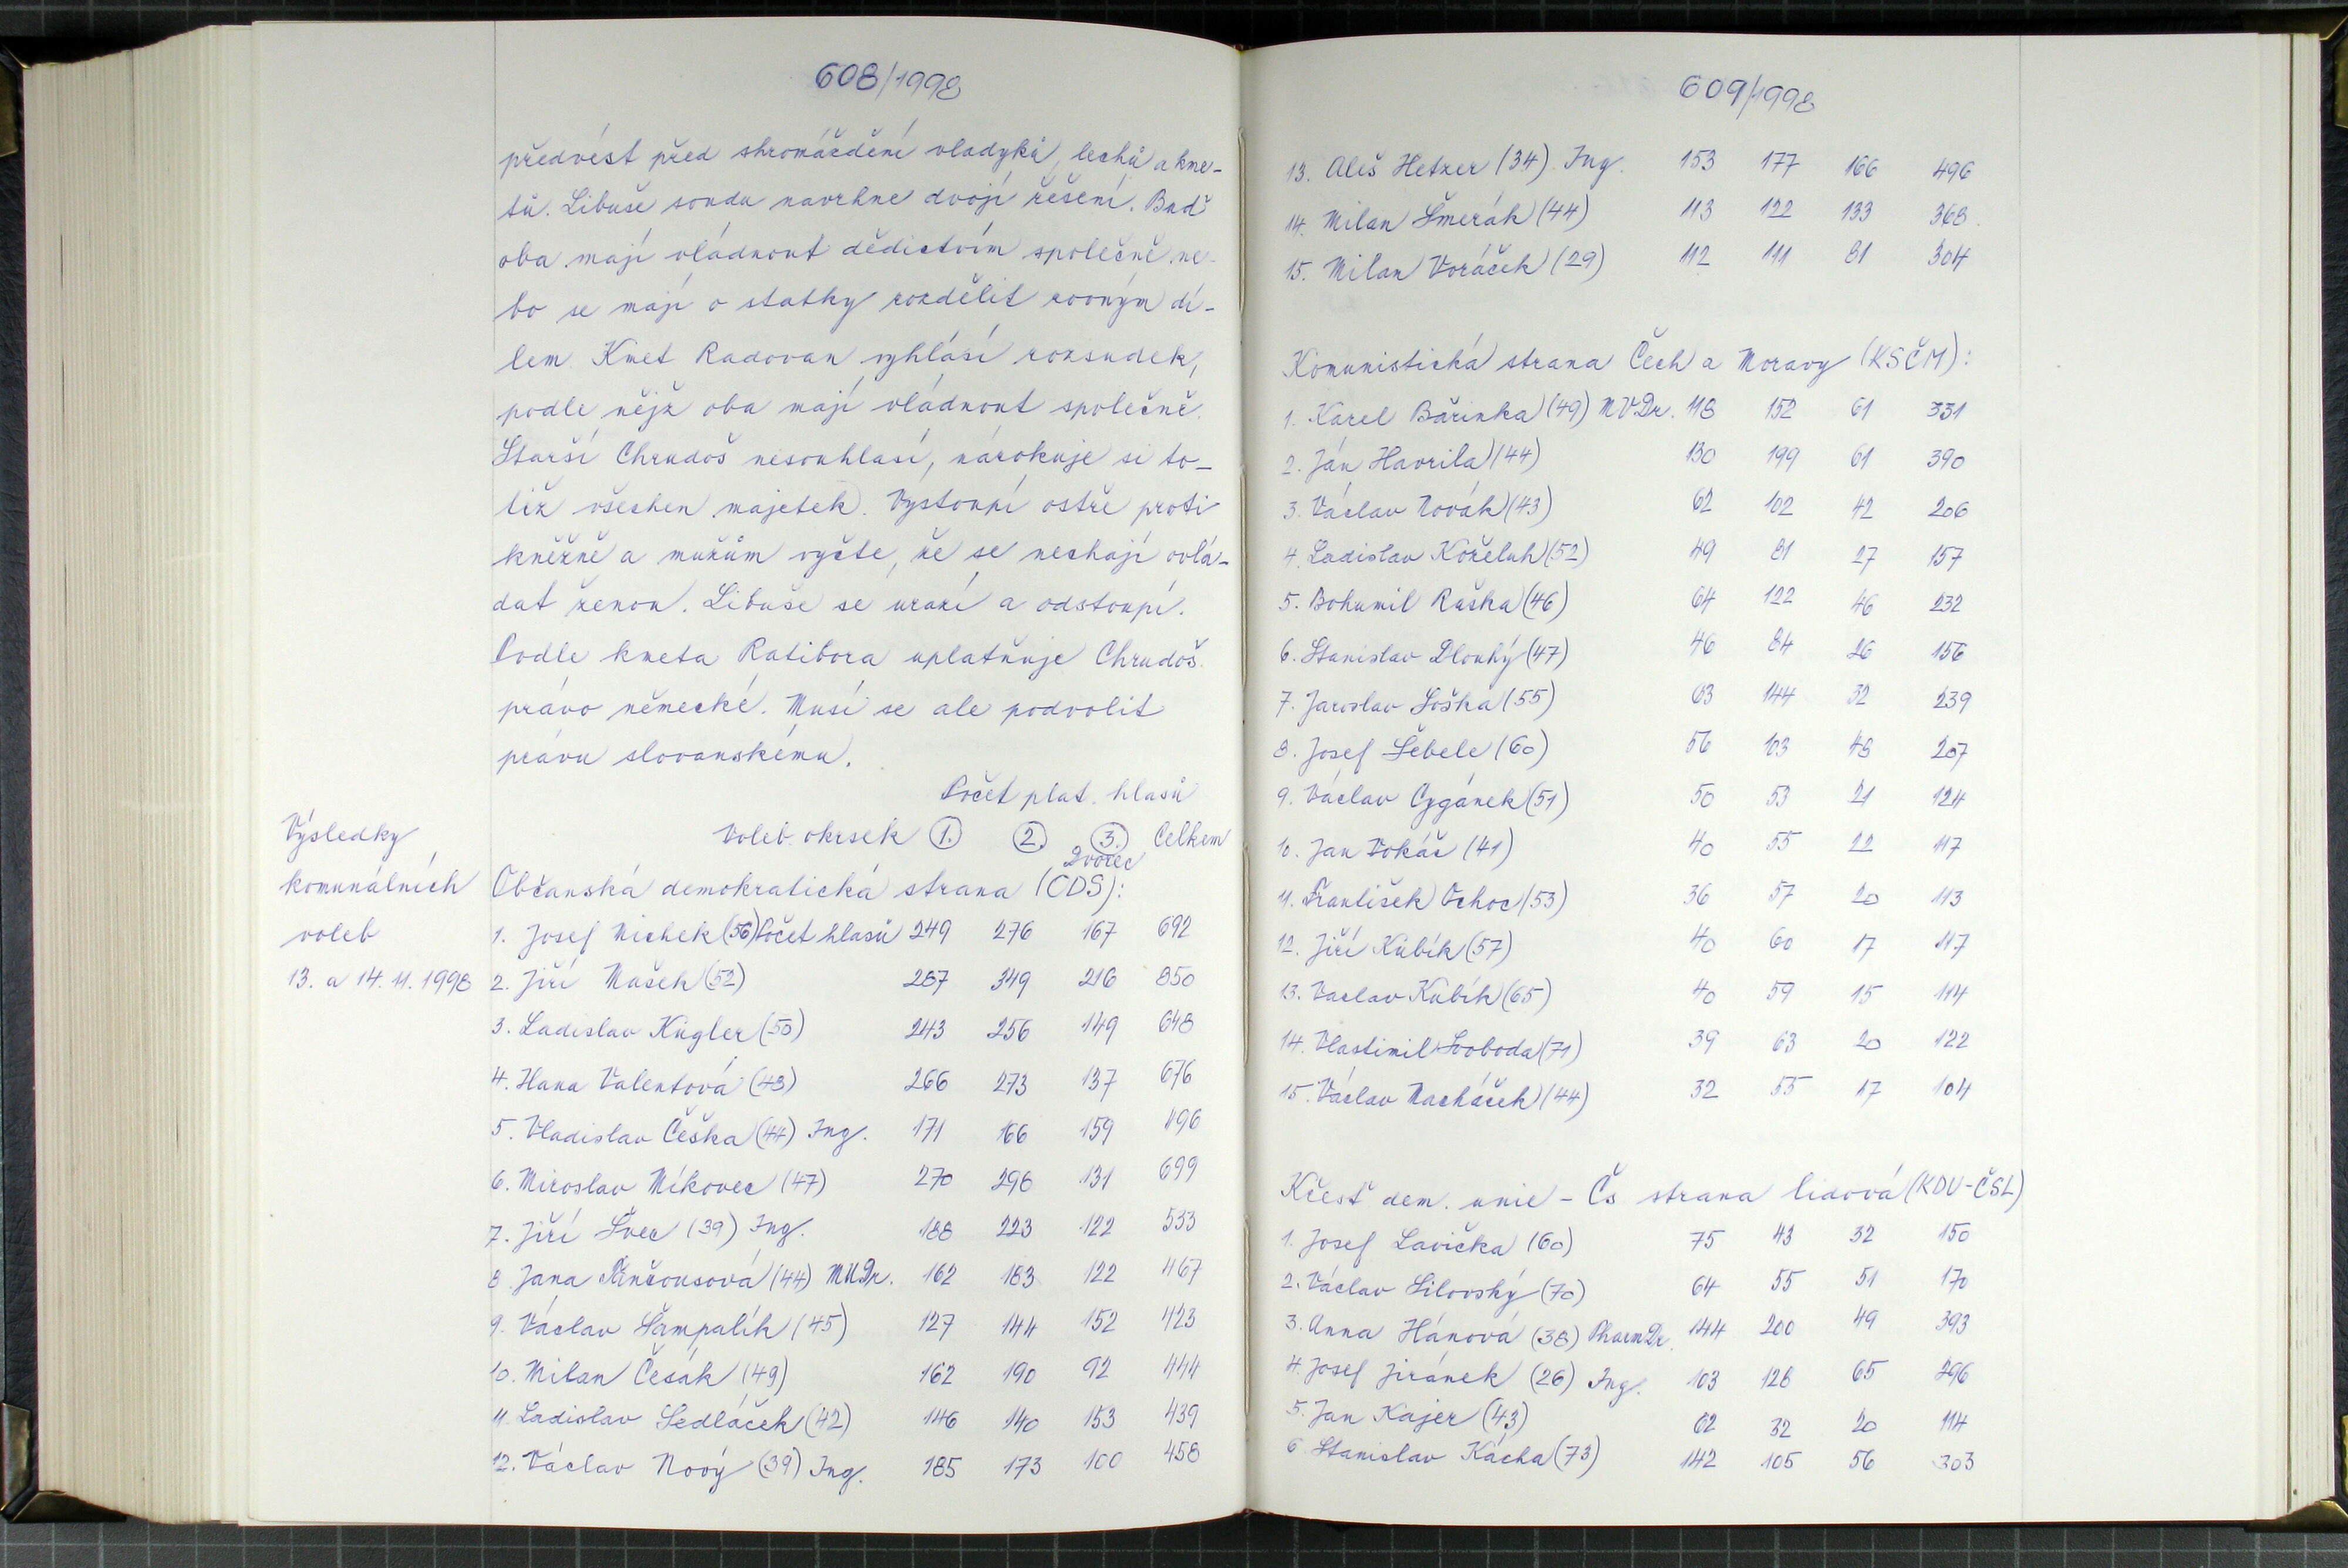 608/1998
předvést před shromáždění vladyků, lechů a kme-
tů. Libuše soudu navrhne dvojí řešení. Buď
oba mají vládnout dědictvím společně ne-
bo se mají o statky rozdělit rovným dí-
lem. Kmet Radovan vyhlásí rozsudek,
podle nějž oba mají vládnout společně.
Starší Chrudoš nesouhlasí, nárokuje si to-
liž všechen majetek. Vystoupí ostře proti
kněžně a mužům vyčte, že se nechají ovlá-
dat ženou. Libuše se urazí a odstoupí.
Podle kmeta Ratibora uplatňuje Chrudoš
právo německé. Musí se ale podvolit
právu slovanskému.
Počet plat. hlasů
Výsledky
komunálních
voleb
13. a 14. 11. 1998
Voleb. okrsek 1. 2. 3. Celkem
Dvorec
Občanská demokratická strana (ODS):
1. Josef Michek (56) Počet hlasů 249 276 167 692
2. Jiří Mašek (52) 287 349 216 850
3. Ladislav Kügler (50) 243 256 149 648
4. Hana Valentová (48) 266 273 137 676
5. Vladislav Češka (44) Ing. 171 166 159 496
6. Miroslav Míkovec (47) 270 298 131 699
7. Jiří Švec (39) Ing. 188 223 122 533
8. Jana (44) MUDr. 162 183 122 467
9. Václav Šampalík (45) 127 144 152 423
10. Milan Česák (49) 162 190 92 444
11. Ladislav Sedláček (42) 146 140 153 439
12. Václav Nový (39) Ing. 185 173 100 458
609/1998
13. Aleš Hetzer (34) Ing. 153 177 166 496
14. Milan Šmerák (44) 113 122 133 368
15. Milan Voráček (29) 112 111 81 304
Komunistická strana Čech a Moravy (KSČM):
1. Karel Bařinka (49) MVDr. 118 152 61 331
2. Ján Havrila (44) 130 199 61 390
3. Václav Novák (43) 62 102 42 206
4. Ladislav Koželuh (52) 49 81 27 157
5. Bohumil Raška (46) 64 122 46 232
6. Stanislav Dlouhý (47) 46 84 26 156
7. Jaroslav Loška (55) 63 144 32 239
8. Josef Šebele (60) 56 103 48 207
9. Václav Cygánek (51) 50 53 21 124
10. Jan Vokáč (41) 40 55 22 117
11. František Vchoc (53) 36 57 20 113
12. Jiří Kubík (57) 40 60 17 117
13. Václav Kubík (65) 40 59 15 114
14. Vlastimil Svoboda (71) 39 63 20 122
15. Václav Macháček (44) 32 55 17 104
Křesť. dem. unie - Čs strana lidová (KDU-ČSL)
1. Josef Lavička (60) 75 43 32 150
2. Václav Silovský (70) 64 55 51 170
3. Anna Hánová (38) PharmDr. 144 200 49 393
4. Josef Jiránek (26) Ing. 103 128 65 296
5. Jan Kajer (43) 62 32 20 114
6. Stanislav Kácha (73) 142 105 56 303